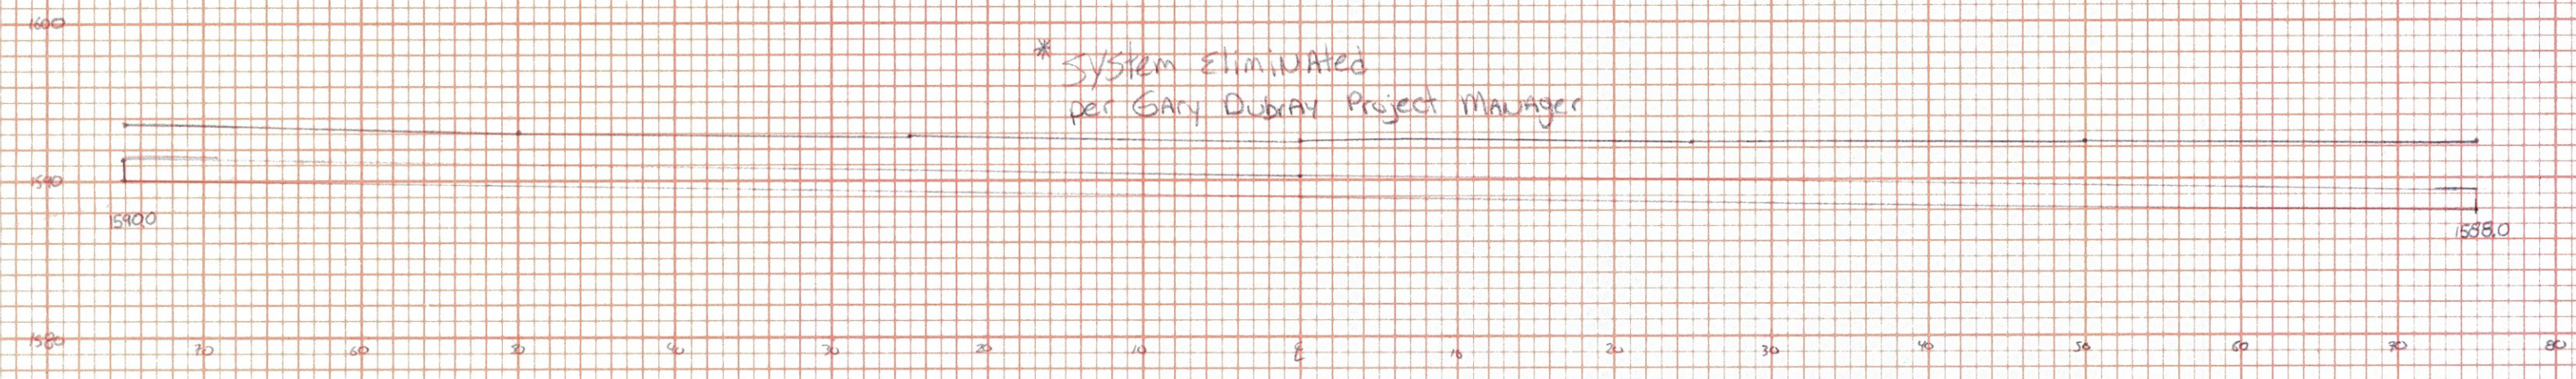 1600
* System Eliminated
per Gary Dubray Project Manager
1590
1590.0
1588.0
1580
70 60 50 40 30 20 10 ℄ 10 20 30 40 50 60 70 80